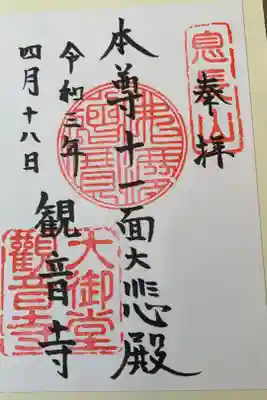 息長山
奉拝
本尊十一面大悲殿
令和三年
四月十八日
観音寺
大御堂
觀音寺